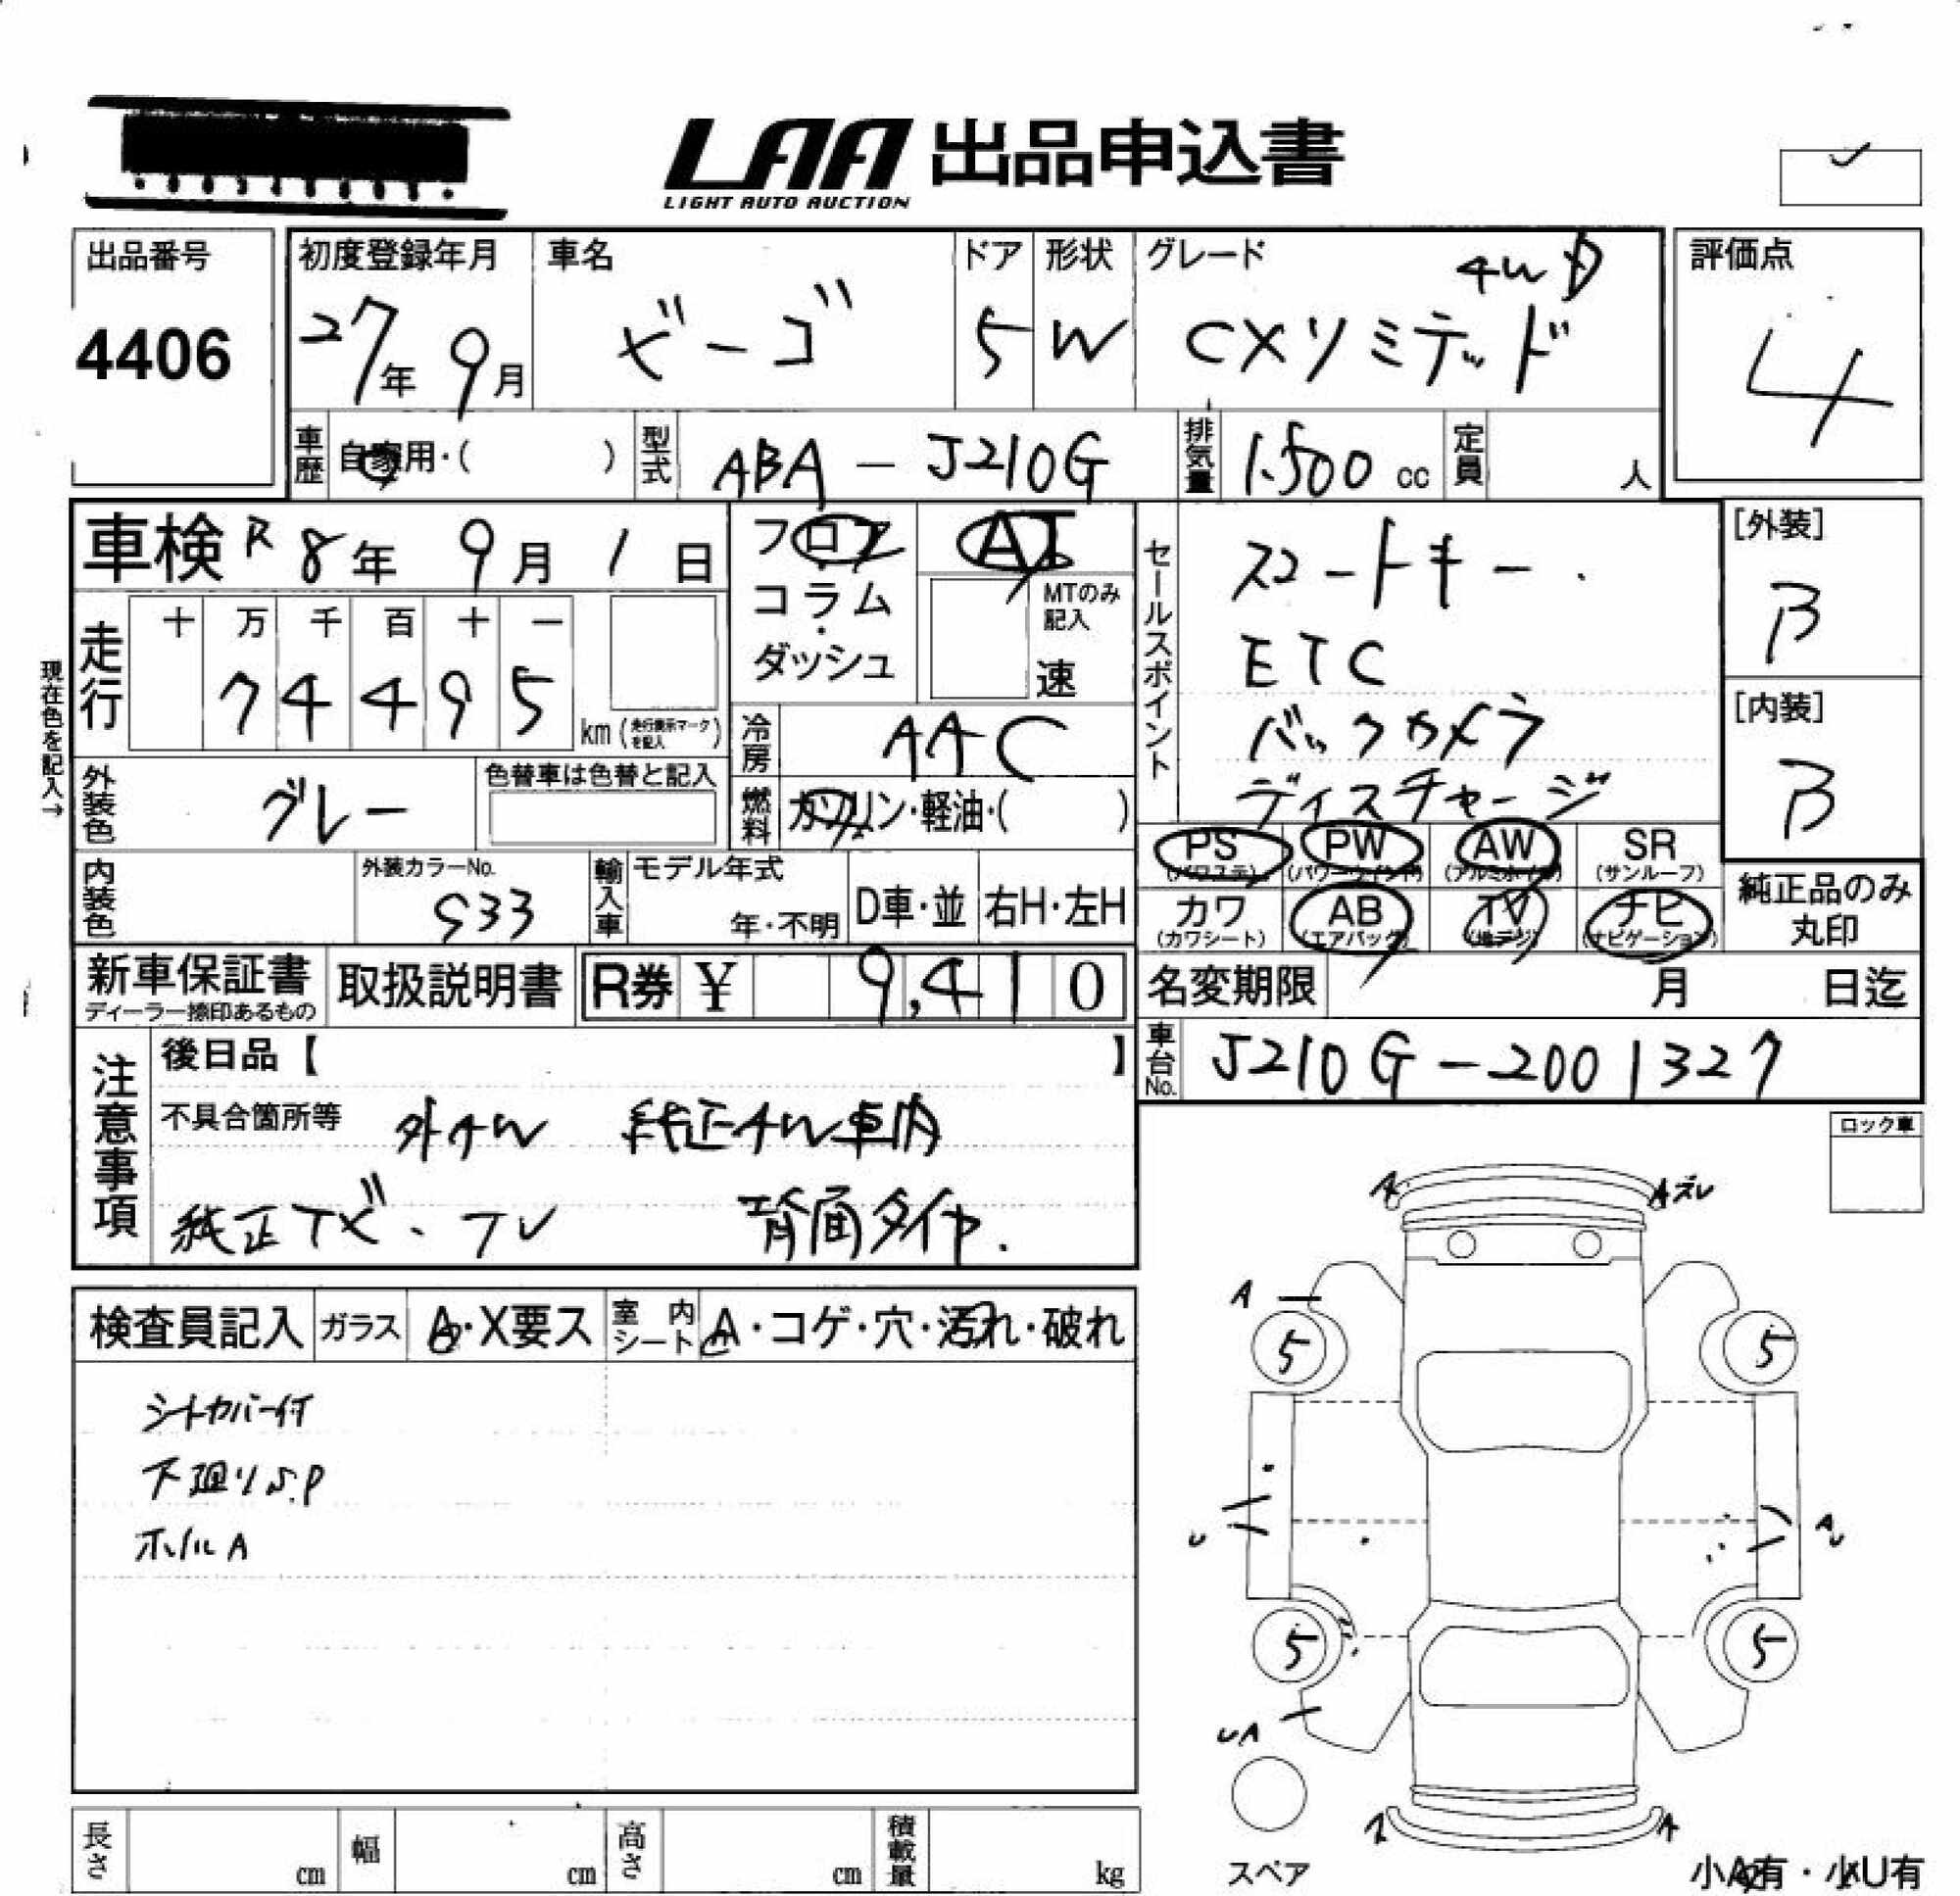 LAA 出品申込書
LIGHT AUTO AUCTION
出品番号
4406
初度登録年月
27年 9月
車名
ビーゴ
ドア
5
形状
W
グレード
4WD
CXリミテッド
評価点
4
車歴 自家用・( )
型式 ABA-J210G
排気量 1.500 cc
定員 人
車検 R8年 9月 1日
フロア・コラム・ダッシュ
AT
MTのみ記入
速
走行
十 万 千 百 十 一
7 4 4 9 5
km (走行表示マークを記入)
現在色を記入→
冷房 AAC
外装色 グレー
色替車は色替と記入
燃料 ガソリン・軽油・( )
セールスポイント
スマートキー.
ETC
バックカメラ
ディスチャージ
[外装]
B
[内装]
B
内装色
外装カラーNo.
S33
輸入車
モデル年式
年・不明
D車・並
右H・左H
PS (パワステ)
PW (パワーウインド)
AW (アルミホイル)
SR (サンルーフ)
カワ (カワシート)
AB (エアバッグ)
TV (地デジ)
ナビ (ナビゲーション)
純正品のみ丸印
新車保証書
ディーラー捺印あるもの
取扱説明書
R券 ¥ 9,410
名変期限 月 日迄
車台No. J210G-2001327
注意事項
後日品【 】
不具合箇所等 外AW 純正AW車内
純正ナビ・TV 背面タイヤ.
検査員記入
ガラス A・X要ス
室内シート A・コゲ・穴・汚れ・破れ
シートカバー付
下廻りS.P
ホイルA
ロック車
A
Aズレ
A
5
5
U
5
5
UA
A
スペア
小A有・小U有
長さ cm
幅 cm
高さ cm
積載量 kg